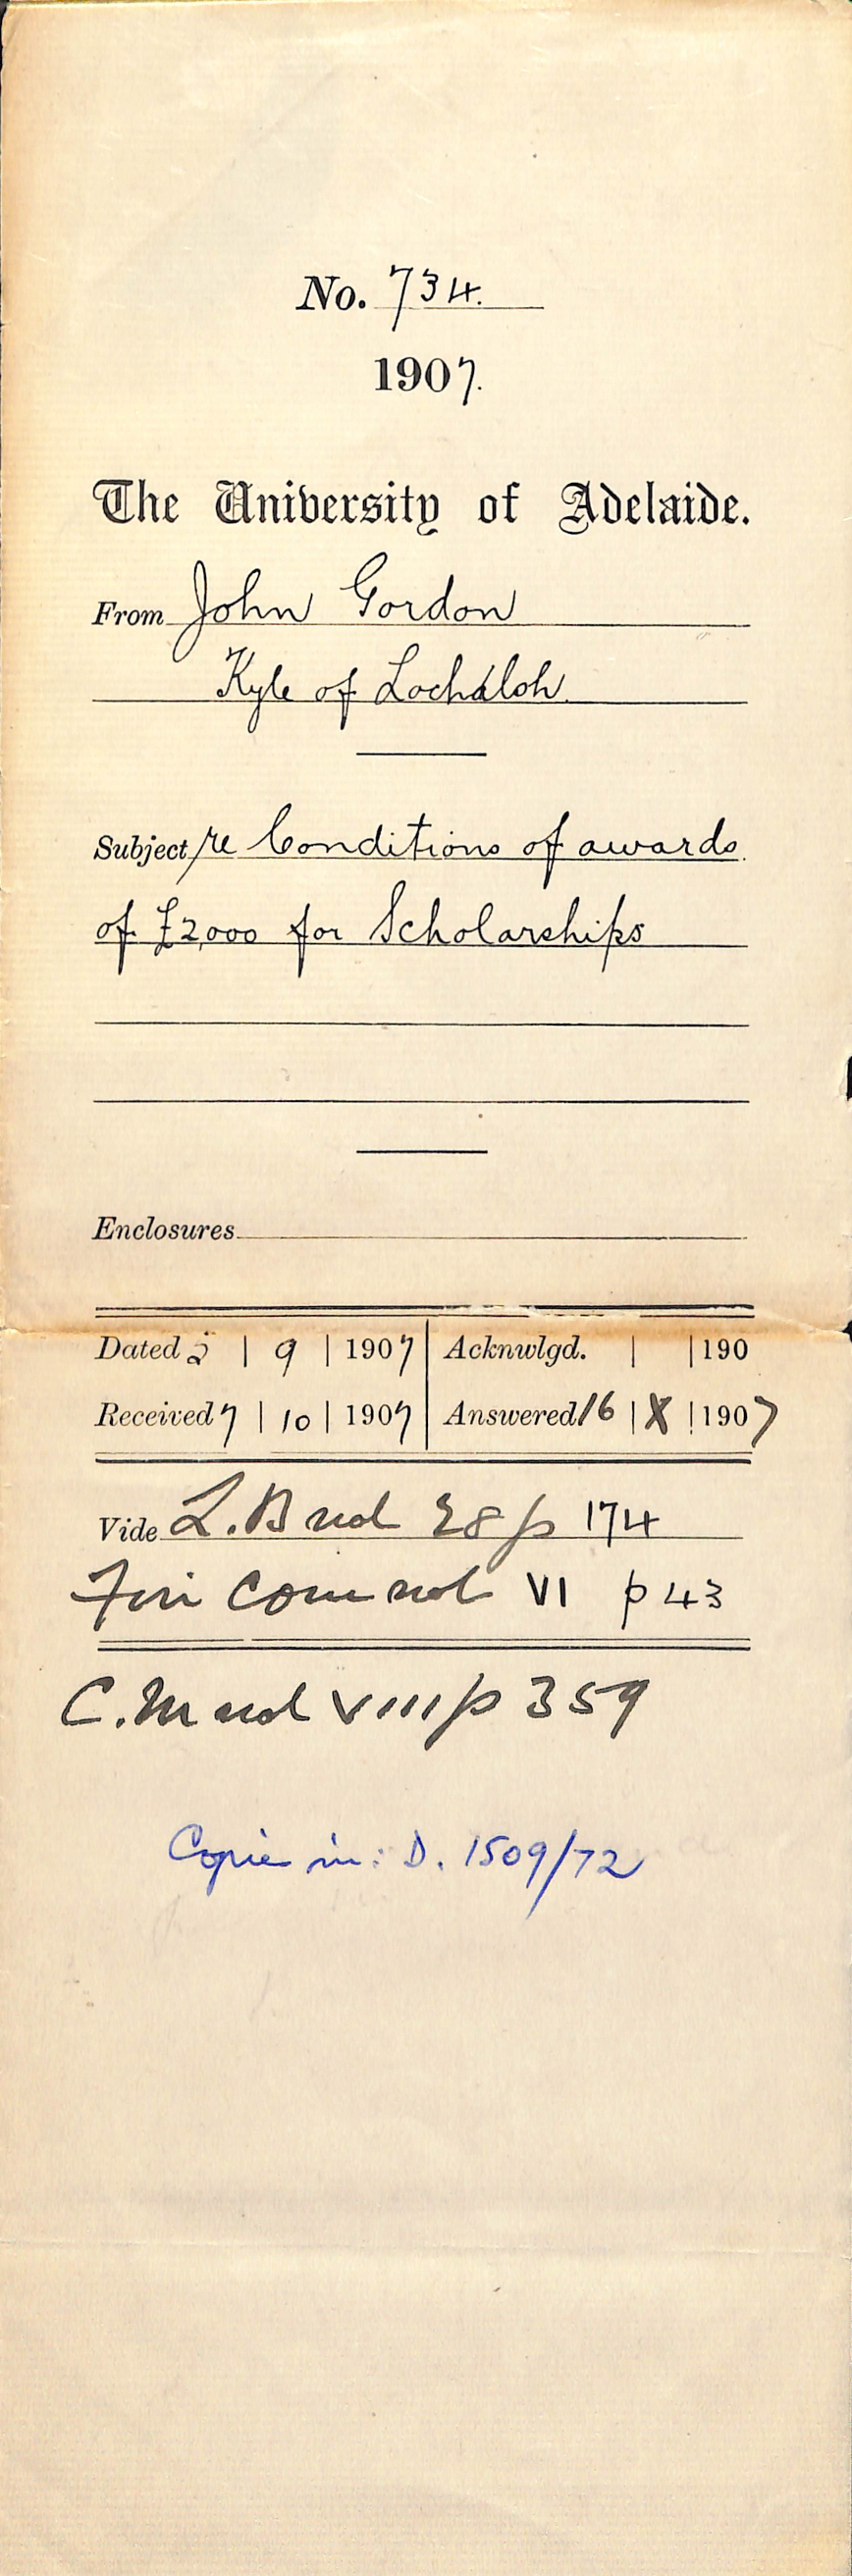 No. 734.
1907.
The University of Adelaide.
From John Gordon
Kyle of Lochalsh
Subject re Conditions of awards
of £2,000 for Scholarships
Enclosures
Dated | 9 | 1907 | Acknwlgd. | | 190
Received 7 | 10 | 1907 | Answered 16 | X | 1907
Vide L.B vol 28 p 174
Fin Com vol VI p 43
C.M vol VIII p 359
Copie in: D. 1509/72